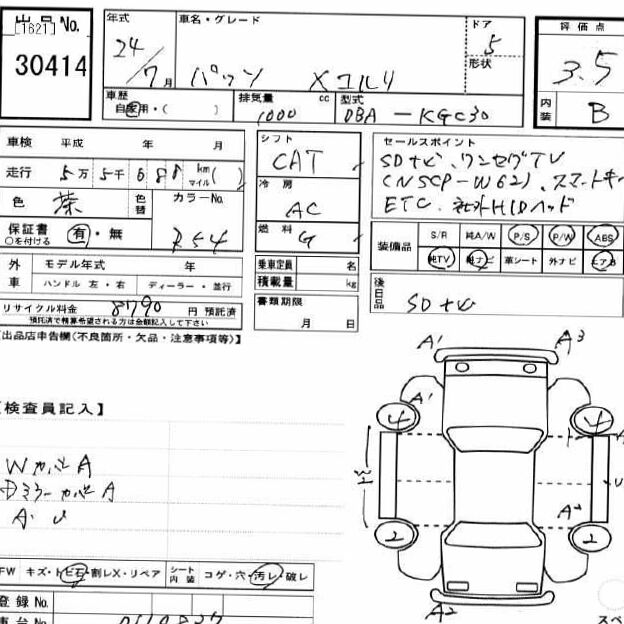 出品No.
[1621]
30414
年式
24/7月
車名・グレード
パッソ Xユルリ
ドア
5
形状
評価点
3.5
内装
B
車歴
自家用・( )
排気量
1000 cc
型式
DBA-KGC30
車検 平成 年 月
走行 5万5千688 km マイル( )
色
茶
色替
カラーNo.
R54
保証書
○を付ける
有・無
シフト
CAT
冷房
AC
燃料
G
セールスポイント
SDナビ、ワンセグTV
(NSCP-W62)、スマートキー
ETC、社外HIDヘッド
装備品
S/R 純A/W P/S P/W ABS
純TV 純ナビ 革シート 外ナビ エアB
外車
モデル年式 年
ハンドル 左・右
ディーラー・並行
乗車定員 名
積載量 kg
書類期限
月 日
後日品
SDナビ
リサイクル料金 8790 円 預託済
預託済で精算希望される方は金額記入して下さい
【出品店申告欄(不良箇所・欠品・注意事項等)】
A1
A3
A1
4
4
【検査員記入】
WカバーA
DミラーカバーA
A・U
A2
2
2
A2
FW キズ・トビ石・割レX・リペア
シート内装
コゲ・穴・汚レ・破レ
登録No.
車台